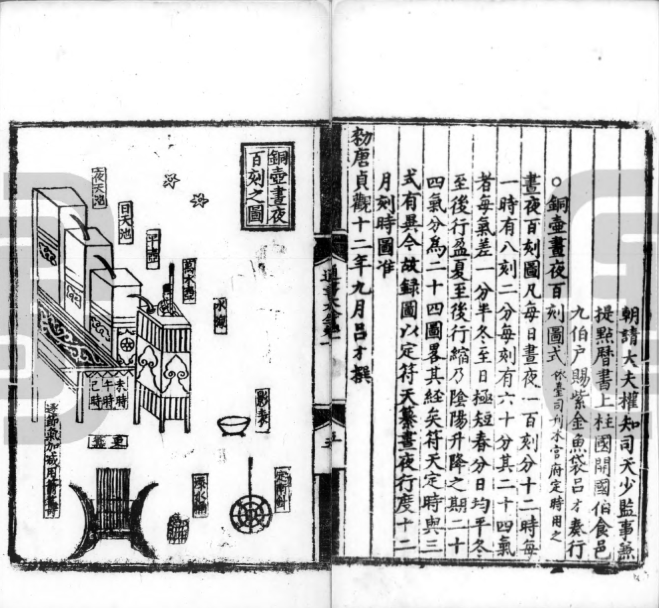 朝請大夫權知司天少監事兼
提點曆書上柱國開國伯食邑
九伯户賜紫金魚袋吕才奏行
○銅壺晝夜百刻圖式 依臺司刋本官府定時用之
晝夜百刻圖凡每日晝夜一百刻分十二時每
一時有八刻二分每刻有六十分其二十四氣
者每氣差一分半冬至日極短春分日均平冬
至後行盈夏至後行縮乃陰陽升降之期二十
四氣分為二十四圖畧其經矣符天定時與三
式有異今故録圖以定符天纂晝夜行度十二
月刻時圖准
勑唐貞觀十二年九月吕才撰
銅壺晝夜
百刻之圖
夜天池
日天池
平壺
萬水壺
水海
影表
未時
午時
巳時
逐節氣加減用箭晝時
定南針